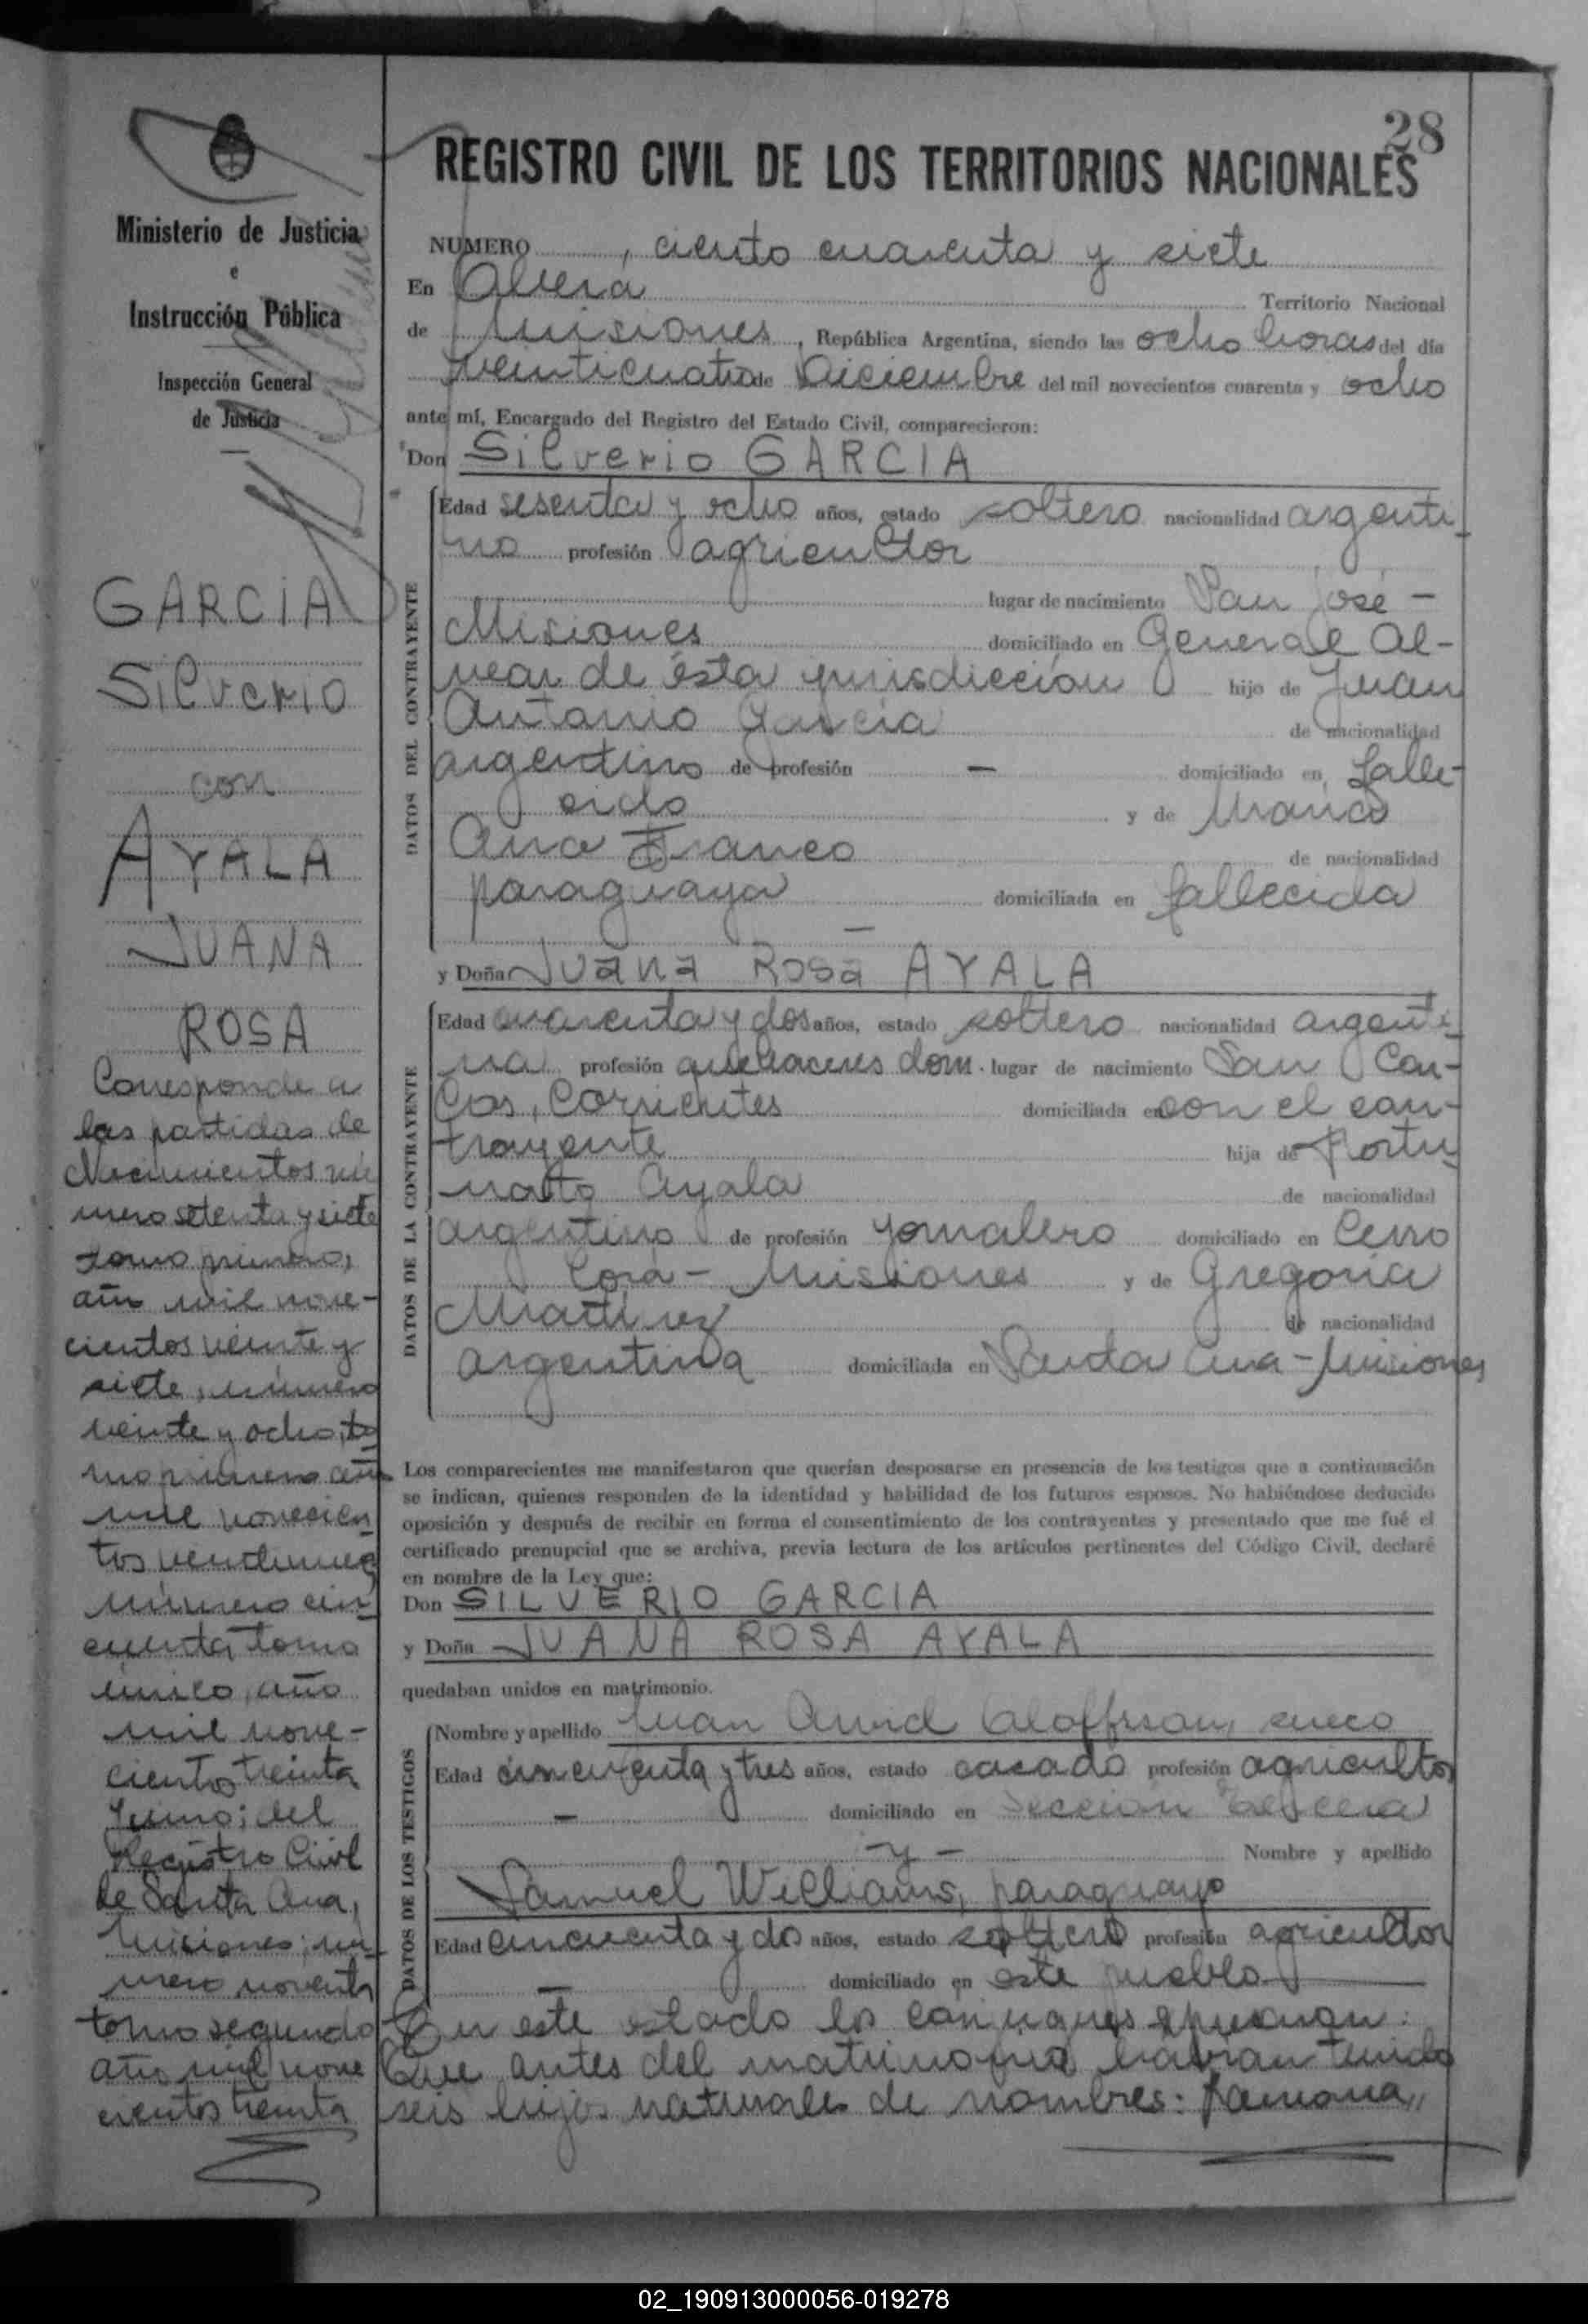 28
Ministerio de Justicia
e
Instrucción Pública
Inspección General
de Justicia
GARCIA
Silverio
con
AYALA
JUANA
ROSA
Corresponde a
las partidas de
Nacimientos nú
mero setenta y siete
tomo primero,
año mil nove-
cientos veinte y
siete, número
veinte y ocho, to
mo primero año
mil novecien
tos
número cin
cuenta, tomo
único, año
mil nove-
cientos treinta
y uno; del
Registro Civil
de Santa Ana,
Misiones; nú
mero noventa
tomo segundo
año mil nove
cientos treinta
REGISTRO CIVIL DE LOS TERRITORIOS NACIONALES
NUMERO , ciento cuarenta y siete
En Oberá Territorio Nacional
de Misiones, República Argentina, siendo las ocho horas del día
veinticuatro de Diciembre del mil novecientos cuarenta y ocho
ante mí, Encargado del Registro del Estado Civil, comparecieron:
Don Silverio GARCIA
DATOS DEL CONTRAYENTE
Edad sesenta y ocho años, estado soltero nacionalidad argenti
no profesión agricultor
lugar de nacimiento San José -
Misiones domiciliado en General Al-
vear de ésta jurisdicción hijo de Juan
Antonio García de nacionalidad
argentino de profesión - domiciliado en falle-
cido y de María
Ana Franco de nacionalidad
paraguaya domiciliada en fallecida
-
y Doña JUANA ROSA AYALA
DATOS DE LA CONTRAYENTE
Edad cuarenta y dos años, estado soltero nacionalidad argenti
na profesión quehaceres dom. lugar de nacimiento San Car-
los, Corrientes domiciliada en con el con-
trayente hija de Fortu
nato Ayala de nacionalidad
argentino de profesión jornalero domiciliado en Cerro
Corá - Misiones y de Gregoria
Martinez de nacionalidad
argentina domiciliada en Santa Ana - Misiones
Los comparecientes me manifestaron que querían desposarse en presencia de los testigos que a continuación
se indican, quienes responden de la identidad y habilidad de los futuros esposos. No habiéndose deducido
oposición y después de recibir en forma el consentimiento de los contrayentes y presentado que me fué el
certificado prenupcial que se archiva, previa lectura de los artículos pertinentes del Código Civil, declaré
en nombre de la Ley que:
Don SILVERIO GARCIA
y Doña JUANA ROSA AYALA
quedaban unidos en matrimonio.
DATOS DE LOS TESTIGOS
Nombre y apellido Juan Arvid sueco
Edad cincuenta y tres años, estado casado profesión agricultor
- domiciliado en Sección Tercera
- y - Nombre y apellido
Samuel Williams, paraguayo
Edad cincuenta y dos años, estado soltero profesión agricultor
- domiciliado en este pueblo
En este estado los conyuges expresan:
Que antes del matrimonio habian tenido
seis hijos naturales de nombres: Ramona,
02_190913000056-019278